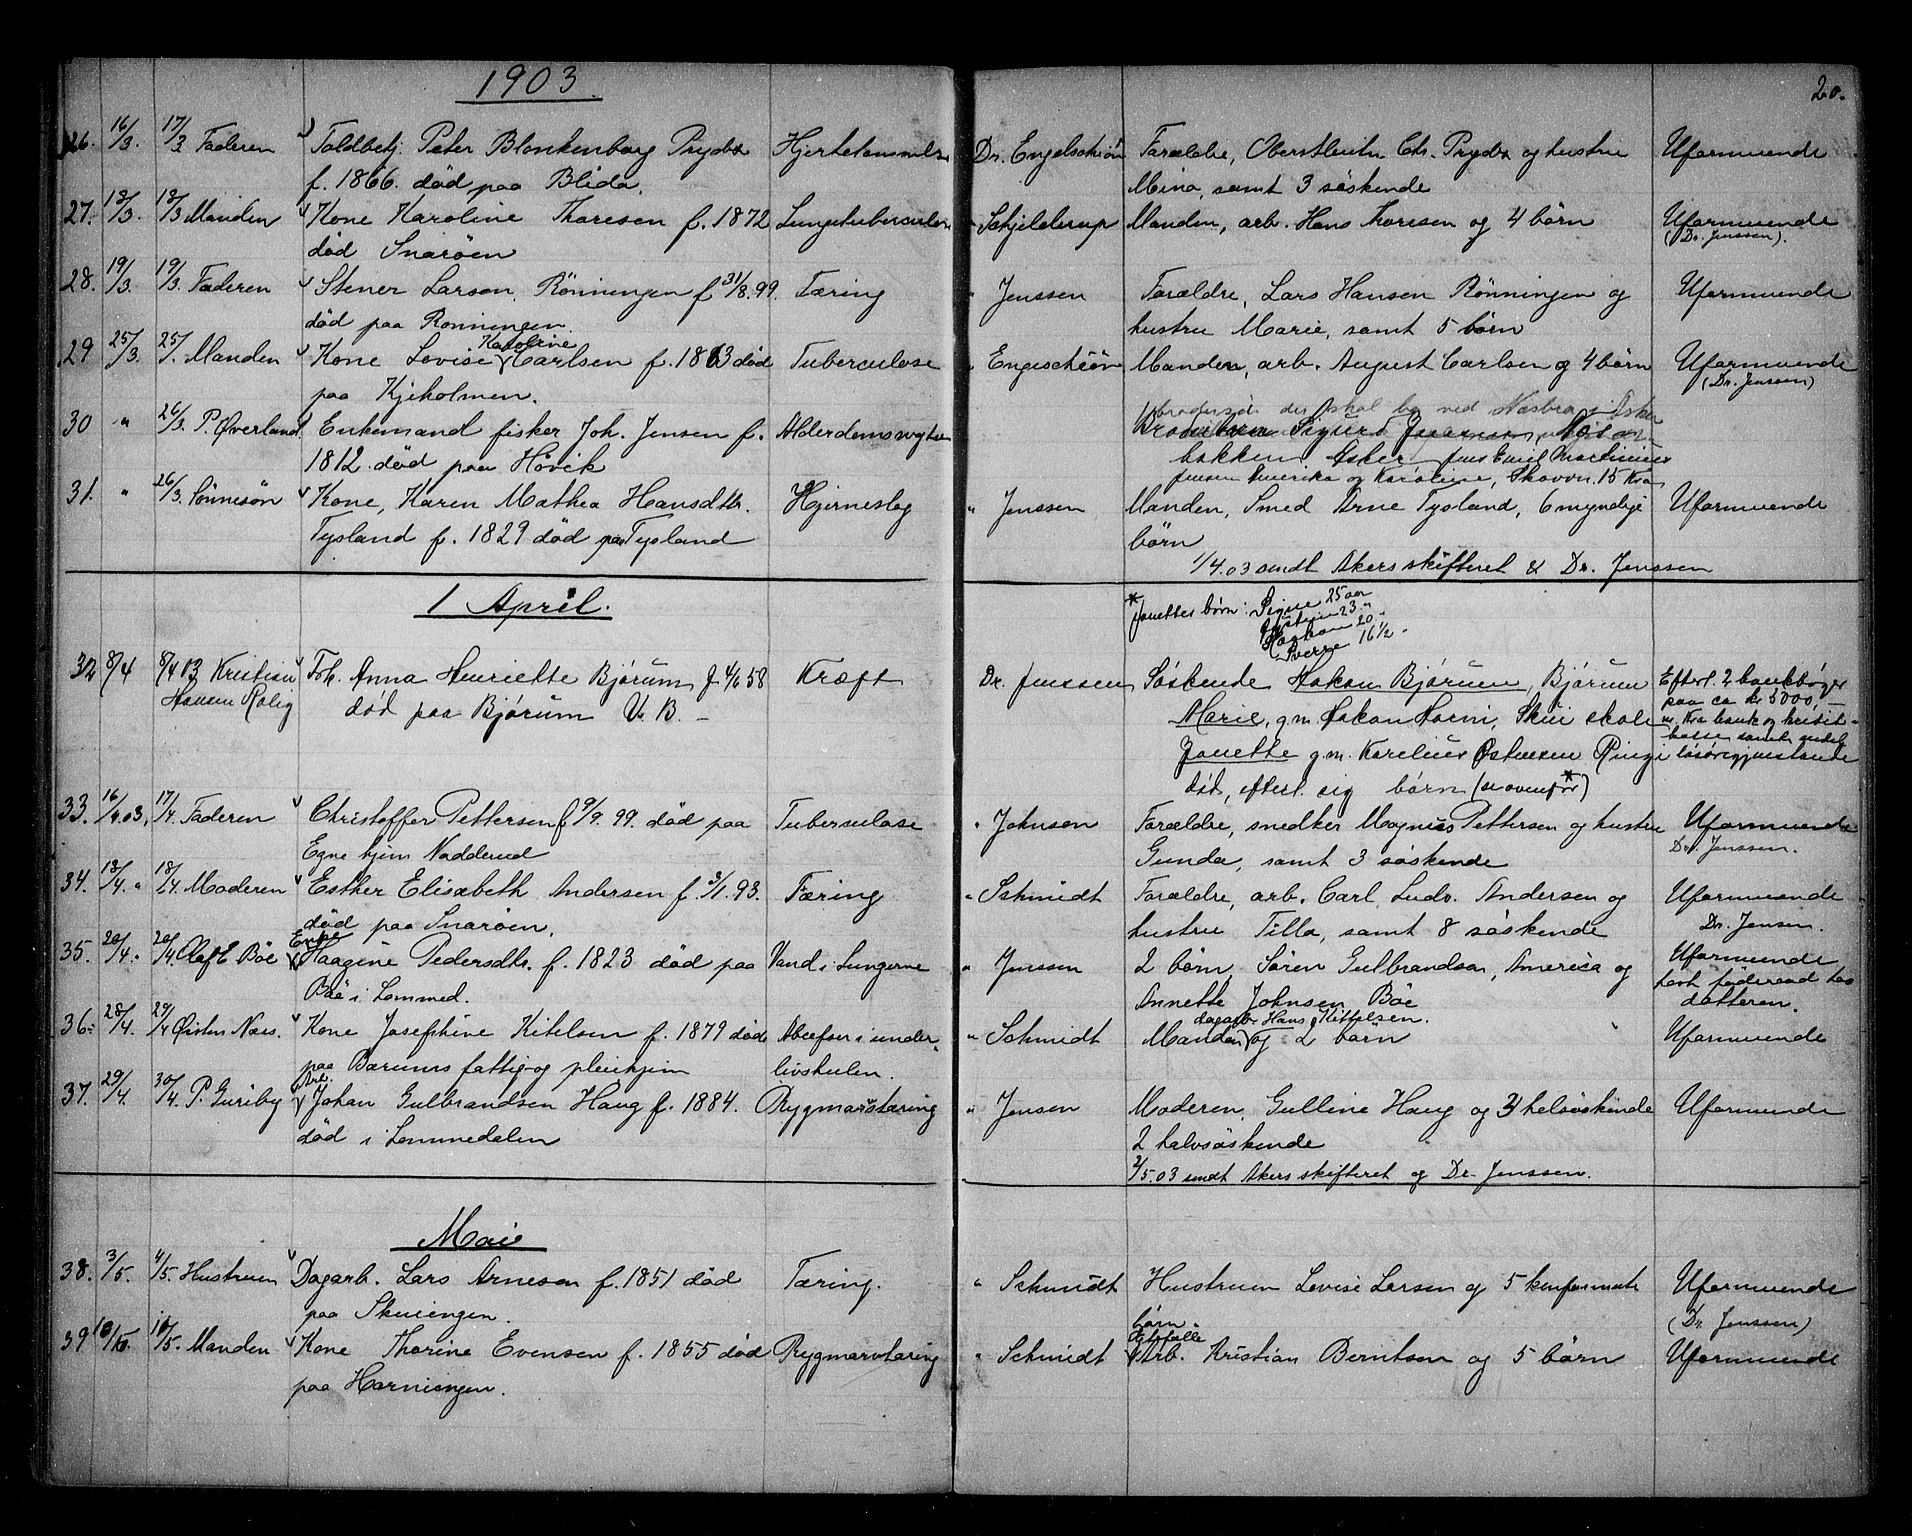 1903
20.
26. 16/3. 17/3 Faderen Toldbetj. Peter Blankenborg Prydz Dr. Engelschiøn Forældre, Oberstleutn. Chr. Prydz og hustru Uformuende
f. 1866. død paa Blida. Mina, samt 3 söskende
27. 18/3. 18/3 Manden Kone Karoline Thoresen f. 1872 Lungetuberculose " Schjelderup Manden, arb. Hans Thoresen og 4 børn Uformuende
død Snarøen (Dr. Jenssen).
28. 19/3. 19/3. Faderen Stener Larsen Rönningen f 31/8.99. Tæring " Jenssen Forældre, Lars Hansen Rönningen og Uformuende
død paa Ronningen. hustru Marie, samt 5 børn
Karoline
29 25/3. 25/ Manden Kone Lovise Carlsen f. 1863 død Tuberculose " Engeschiön Manden, arb. August Carlsen og 4 børn Uformuende
paa Kjeholmen. (Dr. Jenssen)
der skal bo ved Næsbra i Asker
30 " 26/3. P. Øverland Enkemand fisker Joh. Jensen f. Alderdomssvaghed Sigurd
1812. død paa Hövik bakken Asker Jens Emil Martinius
Jensen Amerika og Karoline, 15 Kra
31. " 26/3. Sönnesön Kone, Karen Mathea Hansdtr. Hjerneslag " Jenssen Manden, Smed Arne Tysland, 6 myndige Uformuende
Tysland f. 1829 død paa Tysland börn
1/4.03 sendt Akers skifteret & Dr. Jenssen
1 April.
* Janettes børn: Signe 25 aar
23 "
Haakon 20 "
Sverre 16 1/2 "
32 8/4 8/4 03 Kristian Frk. Anna Henriette Bjørum f 4/6 58 Kræft Dr. Jenssen Søskende Hakon Bjørum, Bjørum Efterl. 2 bankbøger
Hansen Rolig død paa Bjørum V. B. - Marie, g.m. Hakon Horni, Skui skole paa ca kr 5000,-
Janette g.m. Karelius Østensen Ringi løsøregjenstande
død, efterl. sig børn (se ovenfor*)
33. 16/4.03, 17/4. Faderen Christoffer Pettersen f 9/9. 99. død paa Tuberculose " Johnson Forældre, snedker Magnus Pettersen og hustru Uformuende
Egne hjem Nadderud Gunda, samt 3 söskende Dr. Jenssen.
34. 18/4. " 18/4. Moderen Esther Elisabeth Andersen f. 3/1. 93. Tæring " Schmidt Forældre, arb. Carl Ludv. Andersen og Uformuende
død paa Snarøen. hustru Tilla, samt 8 söskende Dr. Jensen.
Enke
35. 20/4. " 20/4. Olaf E Böe Haagine Pedersdtr. f. 1823 død paa Vand i Lungerne " Jenssen 2 børn, Sören Gulbrandsen, America og Uformuende
Böe i Lommed. Annette Johnsen Böe havt föderaad hos datteren.
dagarb. Hans Kittelsen.
36. 28/4. 29/4 Øisten Næs. Kone Josephine Kitelsen f. 1879 død Abcesser i under- " Schmidt Manden og 2 børn Uformuende
paa Bærums fattig- og pleiehjem livshulen.
Arb.
37. 29/4. 30/4. P. Guriby Johan Gulbrandsen Haug f. 1884. Rygmarvstæring " Jensen Moderen, Gulline Haug og 3 helsöskende Uformuende
død i Lommedalen 2 halvsöskende
2/5.03 sendt Akers skifteret og Dr. Jenssen.
Mai
38. 3/5. 4/5. Hustruen Dagarb. Lars Arnesen f. 1851 død Tæring. " Schmidt Hustruen Lovise Larsen og 5 konfirmerte Uformuende
paa Skuiengen. børn. (Dr. Jenssen)
Ægtefælle
39 10/5. 10/5. Manden Kone Thorine Evensen f. 1855 død Rygmarvtæring " Schmidt Arb. Kristian Berntsen og 5 børn Uformuende
paa Horniengen.